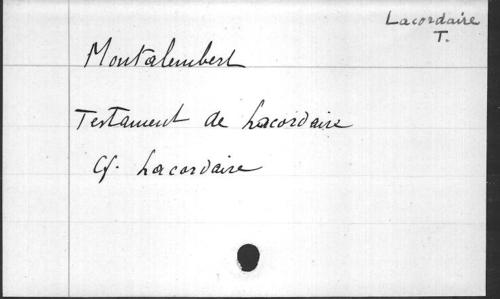 Lacordaire
T.
Montalembert
Testament de Lacordaire
Cf. Lacordaire